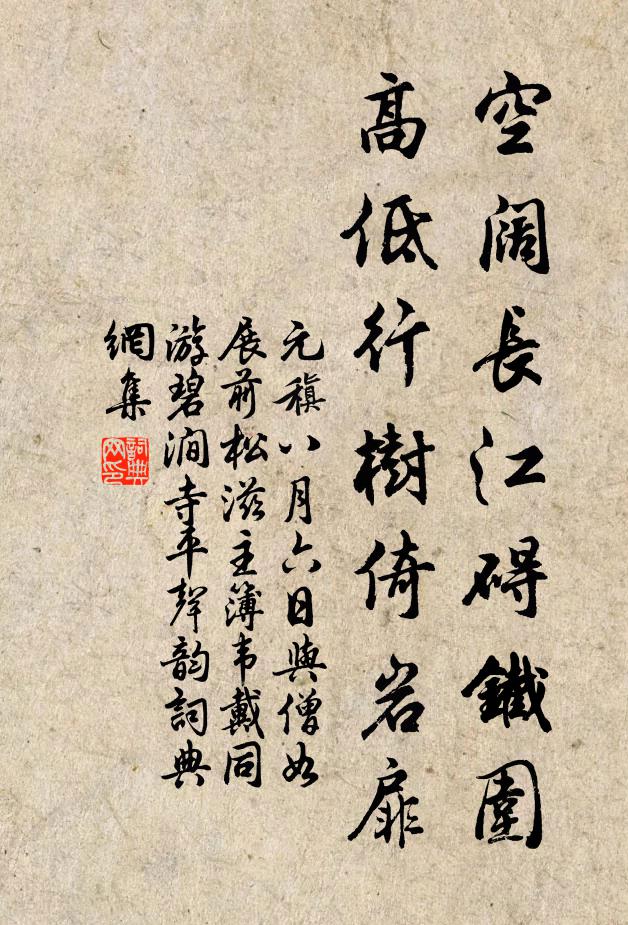 空阔長江碍鐵圍
高低行樹倚岩扉
元稹八月六日與僧如
展前松滋主簿韦戴同
游碧澗寺平聲韵詞典
網集
詞典网印